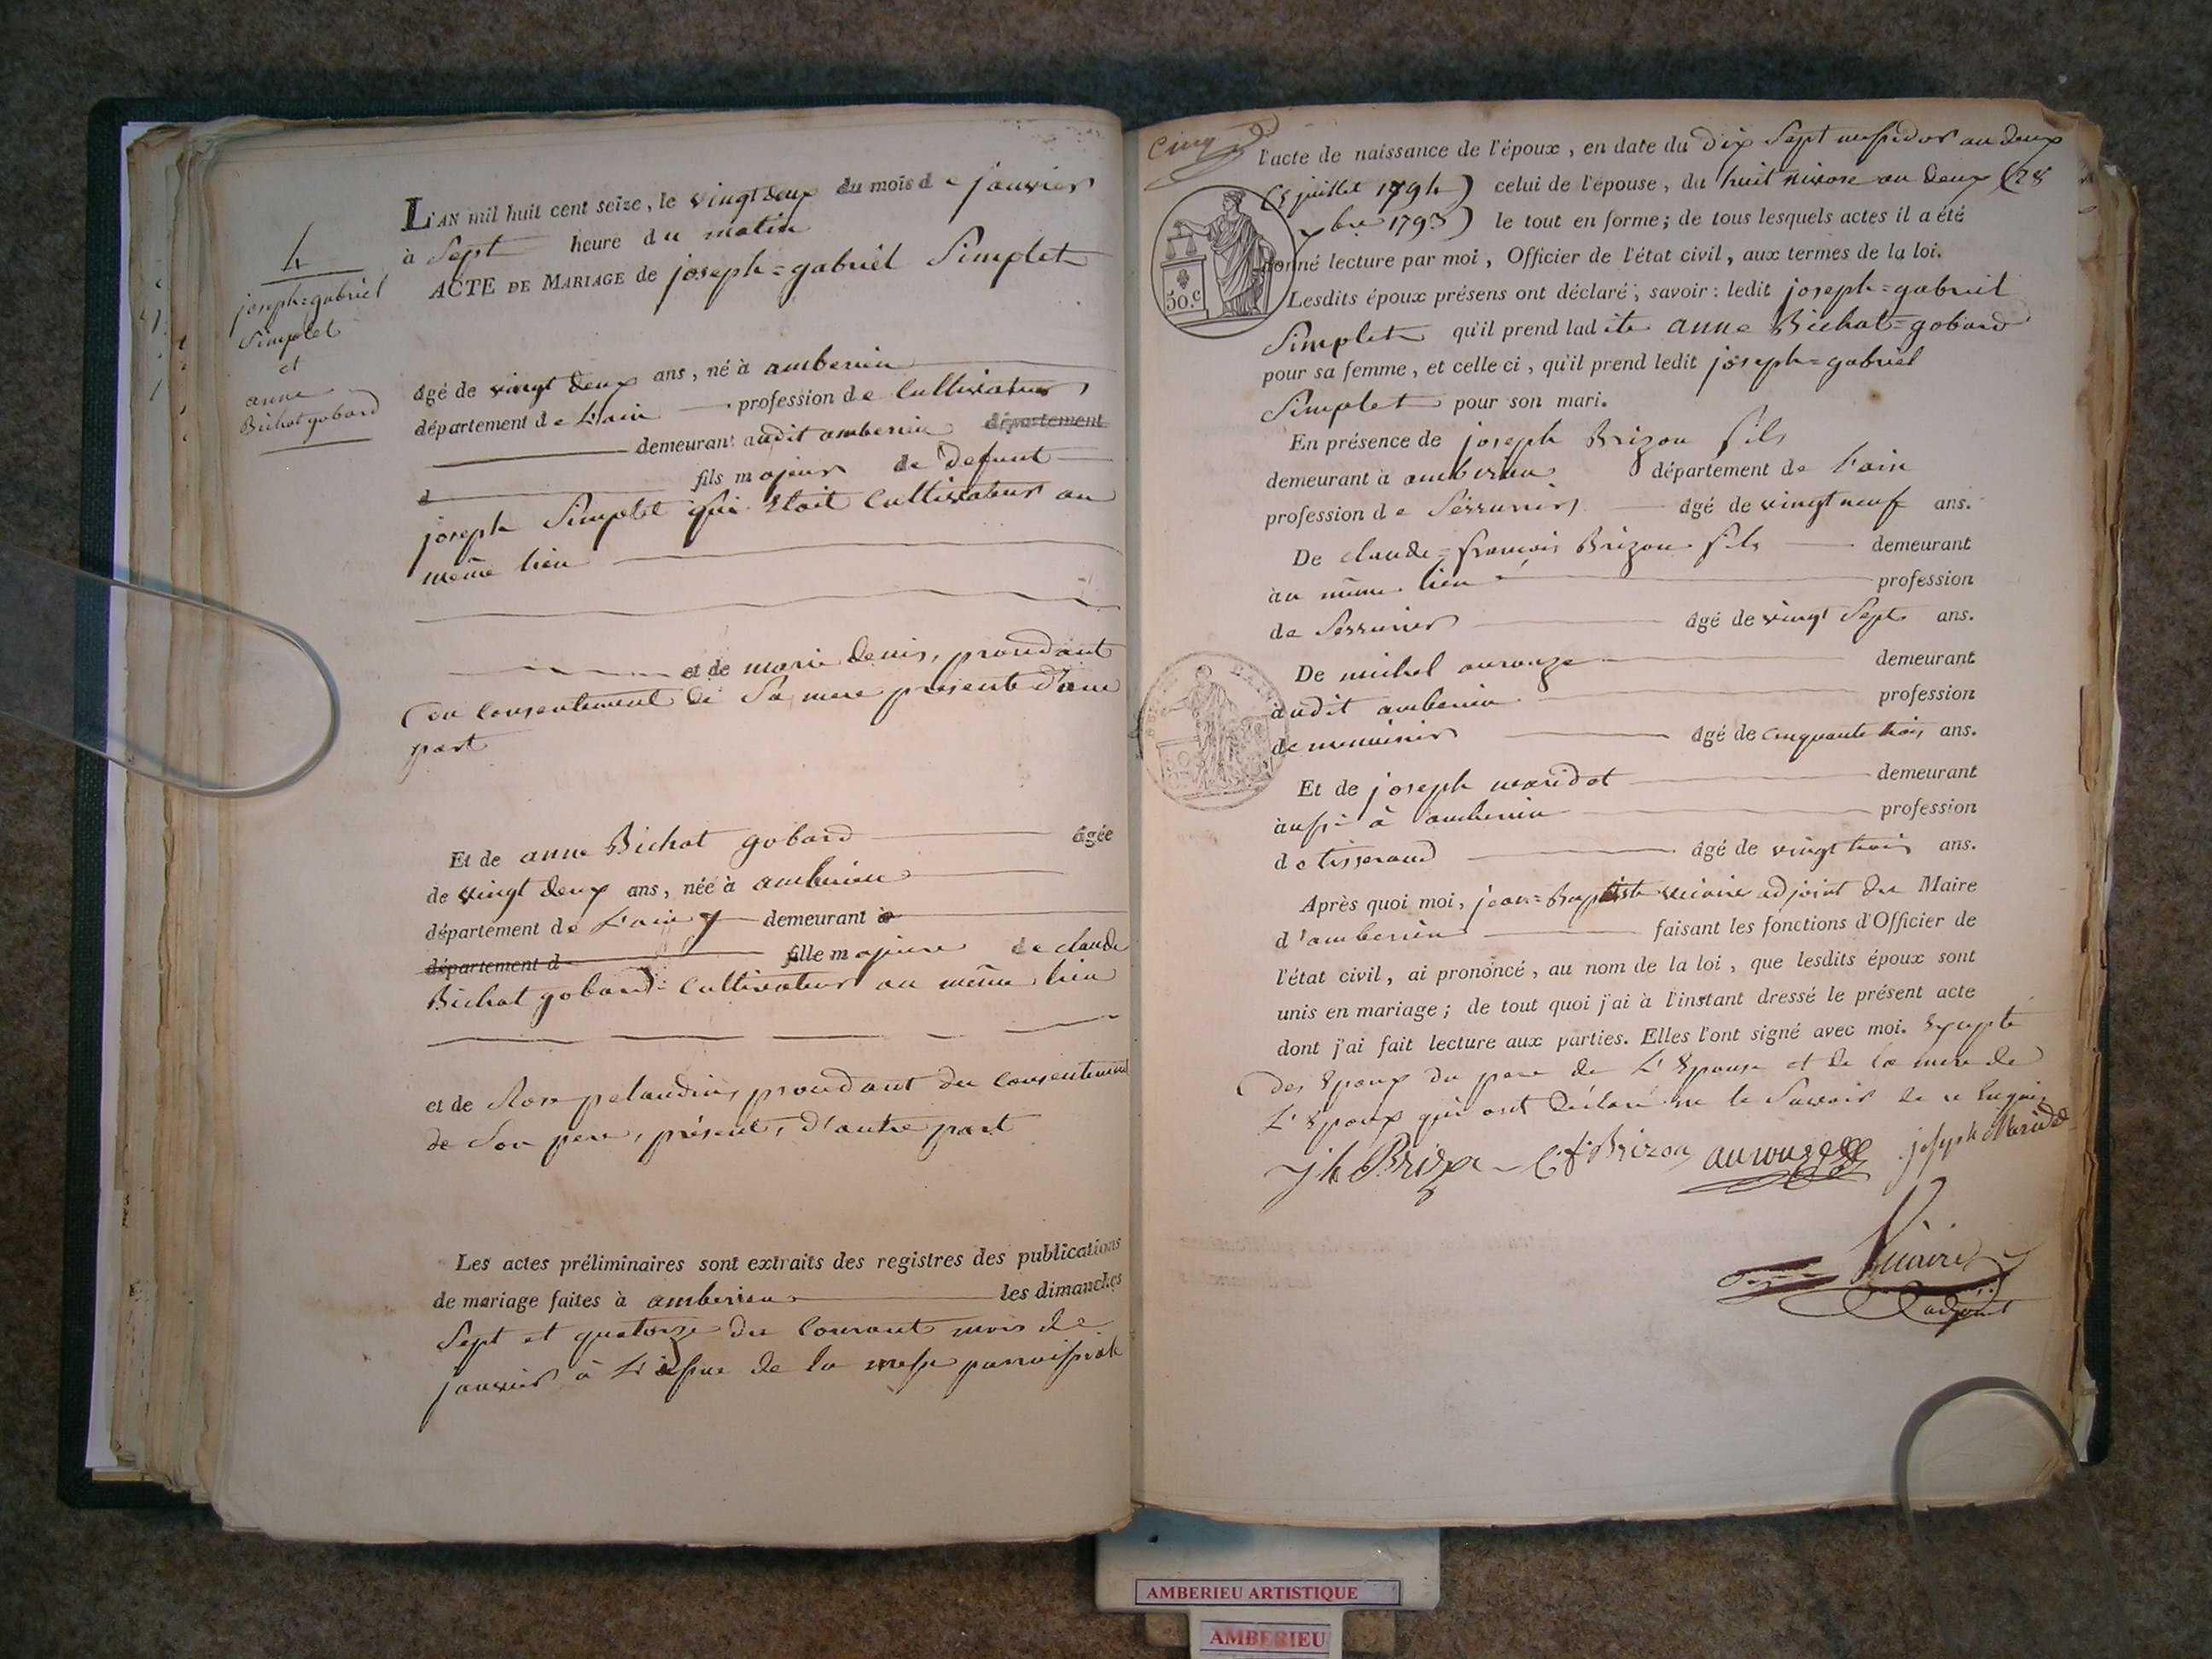 4
joseph=gabriel
Simplet
et
anne
Bichot gobard
L'AN mil huit cent seize, le vingt deux du mois de janvier
à Sept heure du matin
ACTE DE MARIAGE de joseph=gabriel Simplet
âgé de vingt deux ans, né à amberieu
département de L'ain profession de Cultivateur,
demeurant audit amberieu département
fils majeur de defunt
joseph Simplet qui etoit Cultivateur au
même lieu
et de marie denis, procedant
du consentement de Sa mere presente d'une
part
Et de anne Bichot gobard âgée
de vingt deux ans, née à amberieu
département de L'ain y demeurant
département d fille majeure de claude
Bichat gobard Cultivateur au même lieu
et de Rose pelaudin, procedant du consentement
de Son pere, présent, d'autre part
Les actes préliminaires sont extraits des registres des publications
de mariage faites à amberieu les dimanches
Sept et quatorze du Courant mois de
janvier à L'issue de la messe parroissiale
Cinq
l'acte de naissance de l'époux, en date du dix Sept messidor an deux
(5 juillet 1794) celui de l'épouse, du huit nivose an deux (28
bre 1793) le tout en forme; de tous lesquels actes il a été
donné lecture par moi, Officier de l'état civil, aux termes de la loi.
50.c
Lesdits époux présens ont déclaré; savoir: ledit joseph=gabriel
Simplet qu'il prend ladite anne Bichat=gobard
pour sa femme, et celle ci, qu'il prend ledit joseph=gabriel
Simplet pour son mari.
En présence de joseph Brizon fils
demeurant à amberieu département de L'ain
profession de Serrurier âgé de vingt neuf ans.
De claude=francois Brizon fils demeurant
au même lieu profession
de Serrurier âgé de vingt Sept ans.
De michel aurouze demeurant
audit amberieu profession
de menuisier âgé de cinquante trois ans.
Et de joseph maridat demeurant
aussi à amberieu profession
de tisserand âgé de vingt trois ans.
Après quoi moi, jean=Baptiste adjoint du Maire
d'amberieu faisant les fonctions d'Officier de
l'état civil, ai prononcé, au nom de la loi, que lesdits époux sont
unis en mariage; de tout quoi j'ai à l'instant dressé le présent acte
dont j'ai fait lecture aux parties. Elles l'ont signé avec moi. Excepté
des Epoux du pere de L'Epouse et de la mere de
L'Epoux qui ont déclaré ne le Savoir de ce enquis
jh Brizon C f Brizon aurouze joseph Maridat
adjoint
AMBERIEU ARTISTIQUE
AMBERIEU